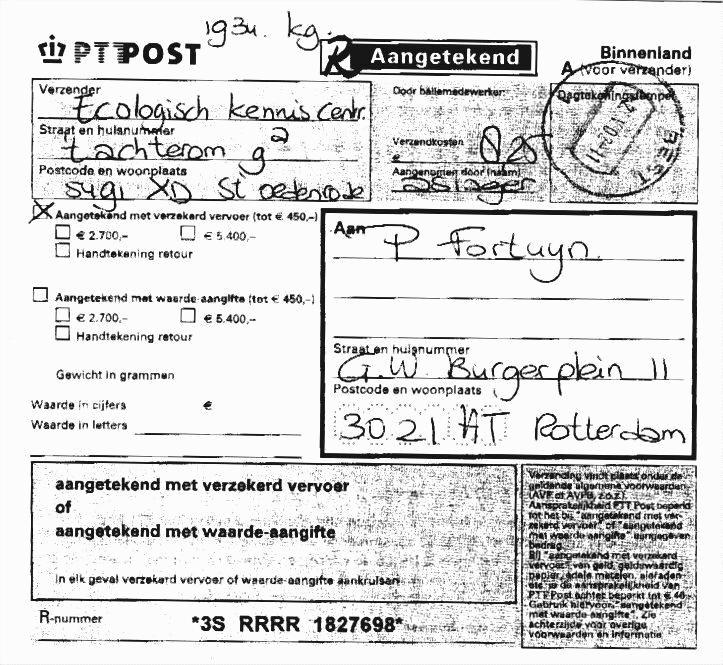 1934. kg.
PTT POST
R Aangetekend
Binnenland
A (voor verzender)
Verzender
Ecologisch kennis Centr.
Straat en huisnummer
't achterom 9a
Postcode en woonplaats
5491 XD St oedenrode
Door baliemedewerker:
Verzendkosten
€
Aangenomen door (naam)
Dagtekeningstempel
BEST
Aangetekend met verzekerd vervoer (tot € 450,-)
€ 2.700,-
€ 5.400,-
Handtekening retour
Aangetekend met waarde-aangifte (tot € 450,-)
€ 2.700,-
€ 5.400,-
Handtekening retour
Gewicht in grammen
Waarde in cijfers €
Waarde in letters
Aan
P Fortuyn.
Straat en huisnummer
G.W. Burgerplein 11
Postcode en woonplaats
3021 AT Rotterdam
aangetekend met verzekerd vervoer
of
aangetekend met waarde-aangifte
In elk geval verzekerd vervoer of waarde-aangifte aankruisen
R-nummer
*3S RRRR 1827698*
Verzending vindt plaats onder de
geldende algemene voorwaarden
(AVP of AVPB, z.o.z.)
Aansprakelijkheid PTT Post beperkt
tot het bij "aangetekend met ver-
zekerd vervoer" of "aangetekend
met waarde aangifte" aangegeven
bedrag.
Bij "aangetekend met verzekerd
vervoer" van geld, geldswaardig
papier, edele metalen, sieraden
etc. is de aansprakelijkheid van
PTT Post echter beperkt tot € 46,-
Gebruik hiervoor "aangetekend
met waarde aangifte". Zie
achterzijde voor overige
voorwaarden en informatie